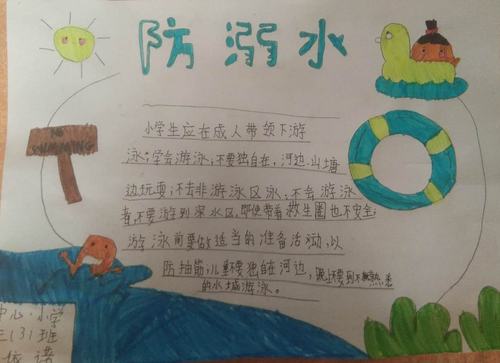 防溺水
NO
SWIMMING
小学生应在成人带领下游
泳;学会游泳,不要独自在,河边,山塘
边玩耍;不去非游泳区泳,不会游泳
者,不要游到深水区,即使带着救生圈也不安全;
游泳前要做适当的准备活动,以
防抽筋,儿童不要独自在河边,
的水域游泳。
中心小学
三(3)班